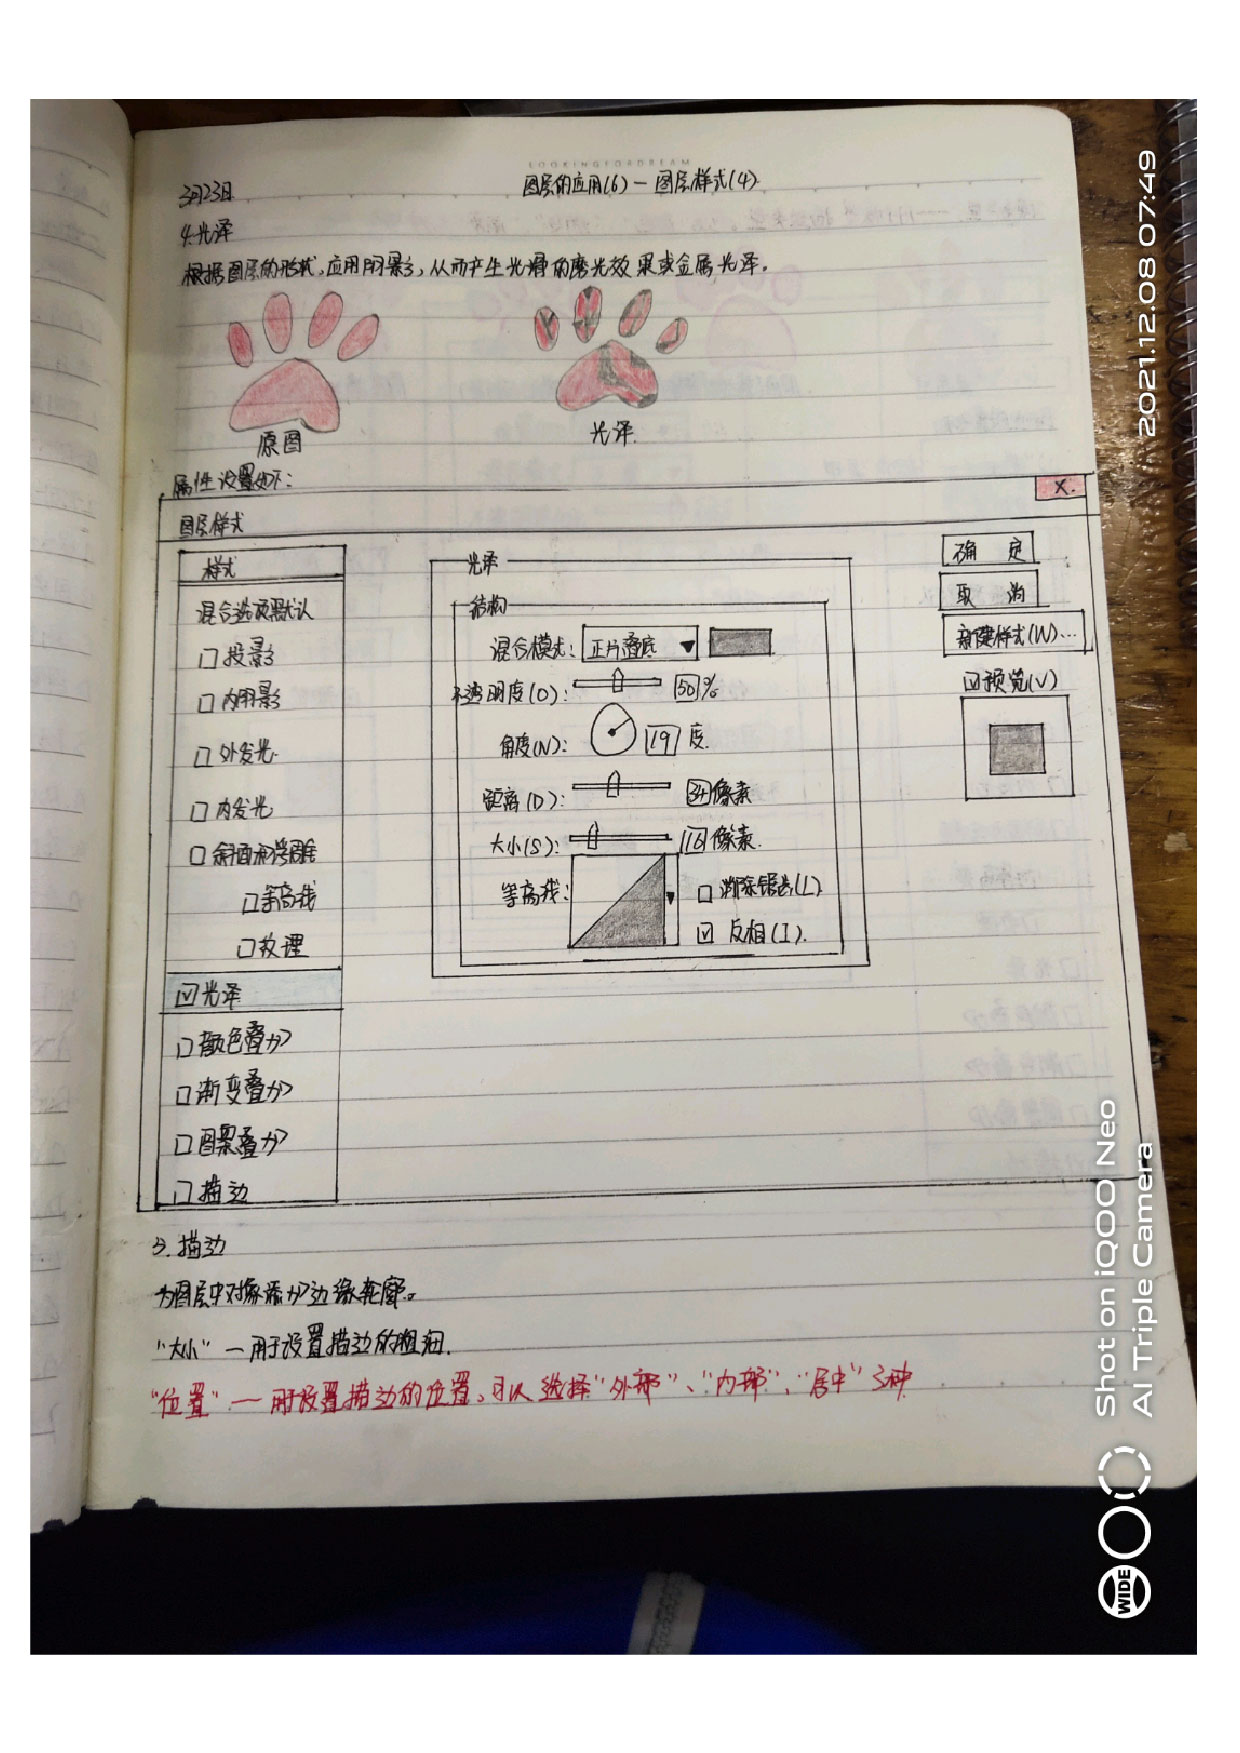 LOOKINGFORDREAM
3月23日
图层的应用(6)一图层样式(4)
4.光泽
根据图层的形状,应用阴影,从而产生光滑的磨光效果或金属光泽。
原图
光泽.
属性设置如下:
X.
图层样式
样式
混合选项默认
□投影
□内阴影
□外发光.
□内发光
□斜面和浮雕
□等高线
□纹理
☑光泽
□颜色叠加
□渐变叠加
□图案叠加
□描边
光泽
结构
混合模式:正片叠底▼
不透明度(O):50%
角度(N):19度.
距离(D):像素
大小(S):像素.
等高线:
□消除锯齿(L)
☑反相(I).
确 定
取 消
新建样式(W)...
☑预览(V)
3.描边
为图层中对象添加边缘轮廓。
"大小"一用于设置描边的粗细.
"位置"一用于设置描边的位置,可以选择"外部"、"内部"、"居中"3种
2021.12.08 07:49
Shot on iQOO Neo
AI Triple Camera
WIDE